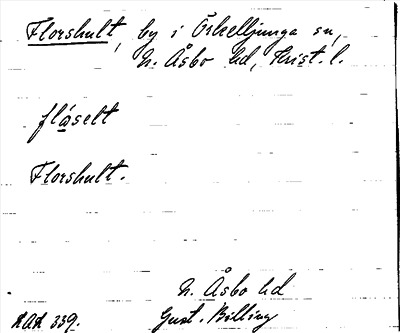 Florshult, by i Örkelljunga sn,
N. Åsbo hd, Krist. l.
flåselt
Florshult.
N. Åsbo hd
RAÄ 339. Gust. Billing